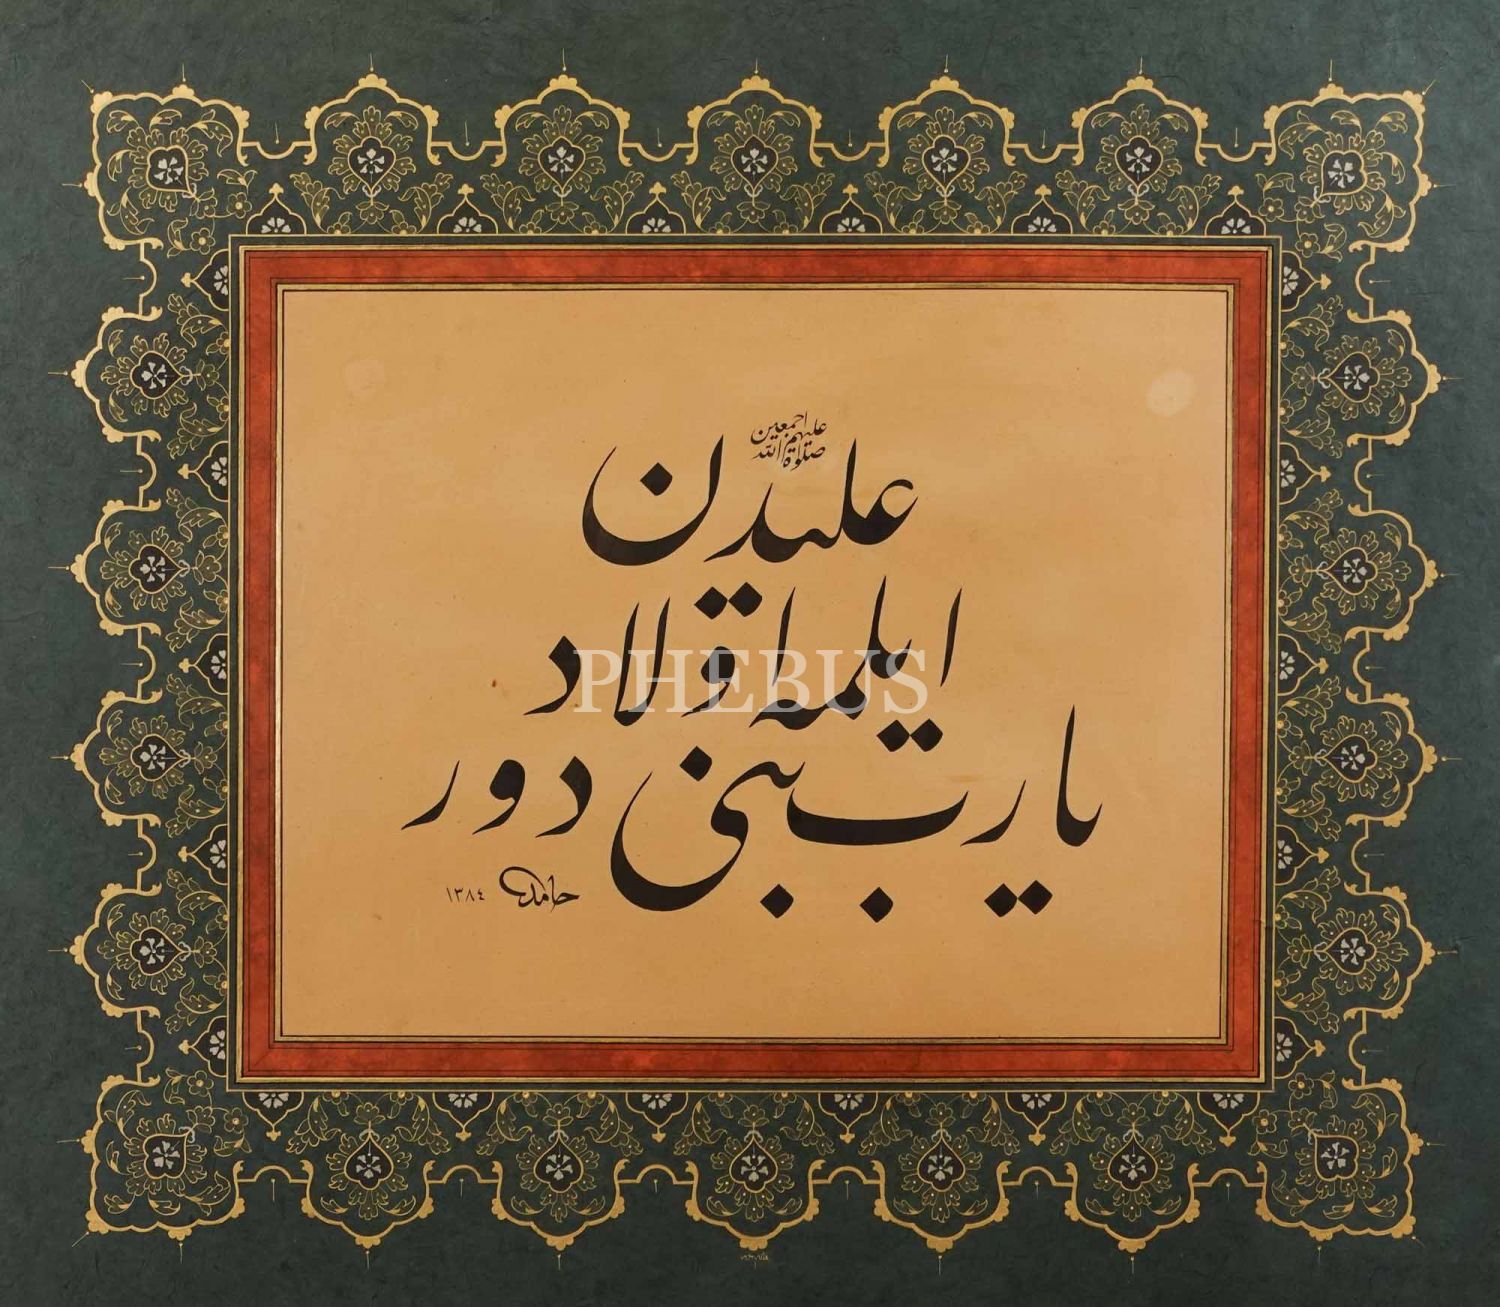 یارب بنی دور
ایلمه اولاد
علیدن
صلوة الله علیهم اجمعین
حامد ١٣٨٤
PHEBUS